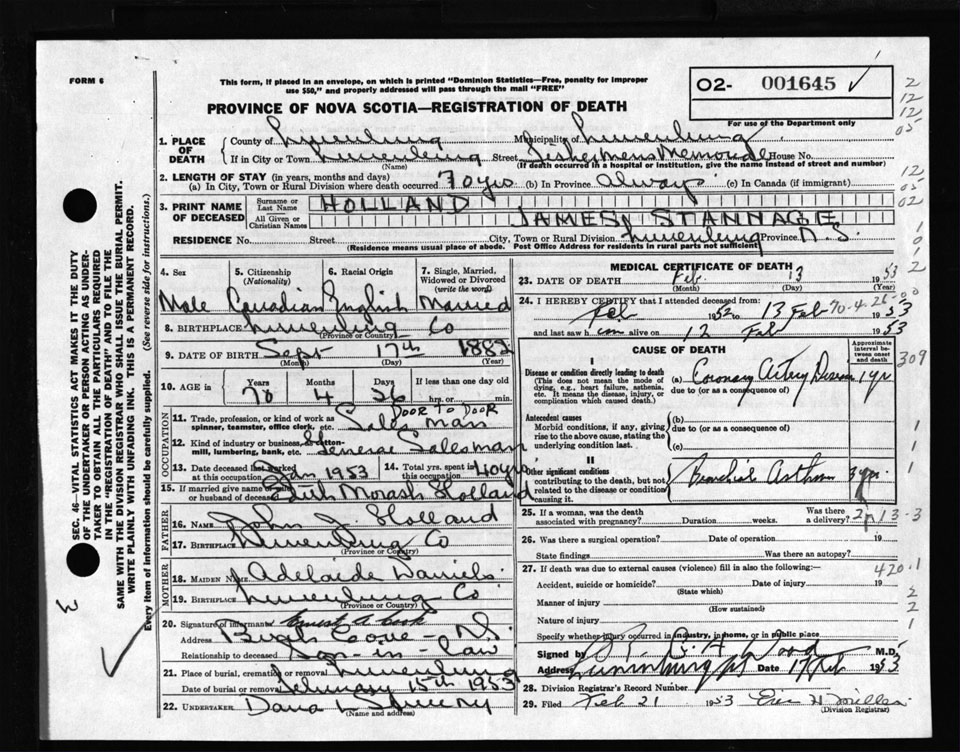 FORM 6
This form, if placed in an envelope, on which is printed "Dominion Statistics—Free, penalty for improper
use $50," and properly addressed will pass through the mail "FREE"
O2- 001645
For use of the Department only
PROVINCE OF NOVA SCOTIA—REGISTRATION OF DEATH
SEC. 46—VITAL STATISTICS ACT MAKES IT THE DUTY
OF THE UNDERTAKER OR PERSON ACTING AS UNDER-
TAKER TO OBTAIN ALL THE PARTICULARS REQUIRED
IN THE "REGISTRATION OF DEATH" AND TO FILE THE
SAME WITH THE DIVISION REGISTRAR WHO SHALL ISSUE THE BURIAL PERMIT.
WRITE PLAINLY WITH UNFADING INK. THIS IS A PERMANENT RECORD.
Every item of information should be carefully supplied. (See reverse side for instructions.)
1. PLACE OF DEATH
County of Lunenburg Municipality of Lunenburg
If in City or Town Lunenburg Street Fishermens Memorial House No.
(Name) (If death occurred in a hospital or institution, give the name instead of street and number)
2. LENGTH OF STAY (in years, months and days)
(a) In City, Town or Rural Division where death occurred 70 yrs (b) In Province always (c) In Canada (if immigrant)
3. PRINT NAME OF DECEASED
Surname or Last Name HOLLAND
All Given or Christian Names JAMES STANNAGE
RESIDENCE No. Street City, Town or Rural Division Lunenburg Province N.S.
(Residence means usual place of abode. Post Office Address for residents in rural parts not sufficient)
4. Sex 5. Citizenship (Nationality) 6. Racial Origin 7. Single, Married, Widowed or Divorced (write the word)
Male Canadian English Married
8. BIRTHPLACE Lunenburg Co
(Province or Country)
9. DATE OF BIRTH Sept 17th 1882
(Month) (Day) (Year)
10. AGE in Years Months Days If less than one day old
70 4 26 hrs. or min.
OCCUPATION
11. Trade, profession, or kind of work as spinner, teamster, office clerk, etc. DOOR TO DOOR Salesman
12. Kind of industry or business, as cotton-mill, lumbering, bank, etc. General Salesman
13. Date deceased last worked at this occupation Jan 1953 14. Total yrs. spent in this occupation 40 yrs
15. If married give name of wife or husband of deceased Edith Morash Holland
FATHER
16. NAME John J. Holland
17. BIRTHPLACE Lunenburg Co
(Province or Country)
MOTHER
18. MAIDEN NAME Adelaide Daniels
19. BIRTHPLACE Lunenburg Co.
(Province or Country)
20. Signature of informant Ernest A Cook
Address N.S.
Relationship to deceased Son-in-law
21. Place of burial, cremation or removal Lunenburg
Date of burial or removal February 15th 1953
22. UNDERTAKER Dana L Sweeny
(Name and address)
MEDICAL CERTIFICATE OF DEATH
23. DATE OF DEATH Feb 13 1953
(Month) (Day) (Year)
24. I HEREBY CERTIFY that I attended deceased from:
Feb 1952 to 13 Feb 1953
and last saw him alive on 12 Feb 1953
CAUSE OF DEATH
Approximate interval between onset and death
I
Disease or condition directly leading to death
(This does not mean the mode of dying, e.g., heart failure, asthenia, etc. It means the disease, injury, or complication which caused death.)
(a) Coronary Artery Disease 1 yr
due to (or as a consequence of)
Antecedent causes
Morbid conditions, if any, giving rise to the above cause, stating the underlying condition last.
(b)
due to (or as a consequence of)
(c)
II
Other significant conditions contributing to the death, but not related to the disease or condition causing it.
Bronchial Asthma 3 yrs
25. If a woman, was the death associated with pregnancy? Duration weeks. Was there a delivery?
26. Was there a surgical operation? Date of operation 19
State findings Was there an autopsy?
27. If death was due to external causes (violence) fill in also the following:—
Accident, suicide or homicide? Date of injury 19
(State which)
Manner of injury
(How sustained)
Nature of injury
Specify whether injury occurred in industry, in home, or in public place
Signed by Wood M.D.
Address Lunenburg NS Date 17 Feb 1953
28. Division Registrar's Record Number
29. Filed Feb 21 1953
(Division Registrar)
2
12
12
05
12
05
02
309
420.1